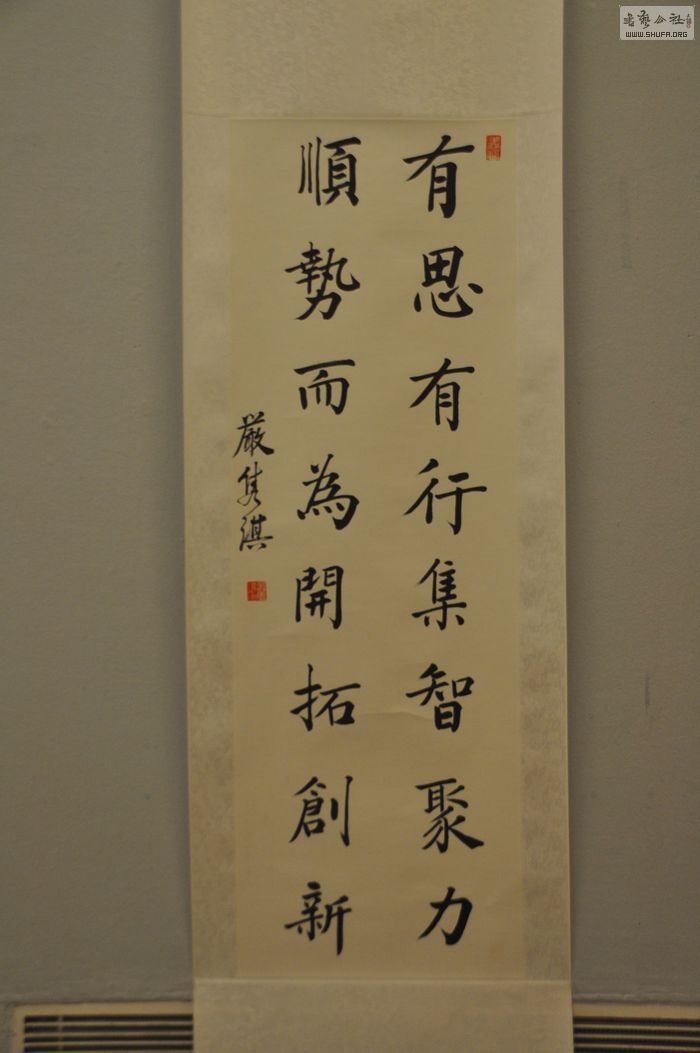 有思有行集智聚力
順勢而為開拓創新
嚴隽淇
書藝公社
WWW.SHUFA.ORG